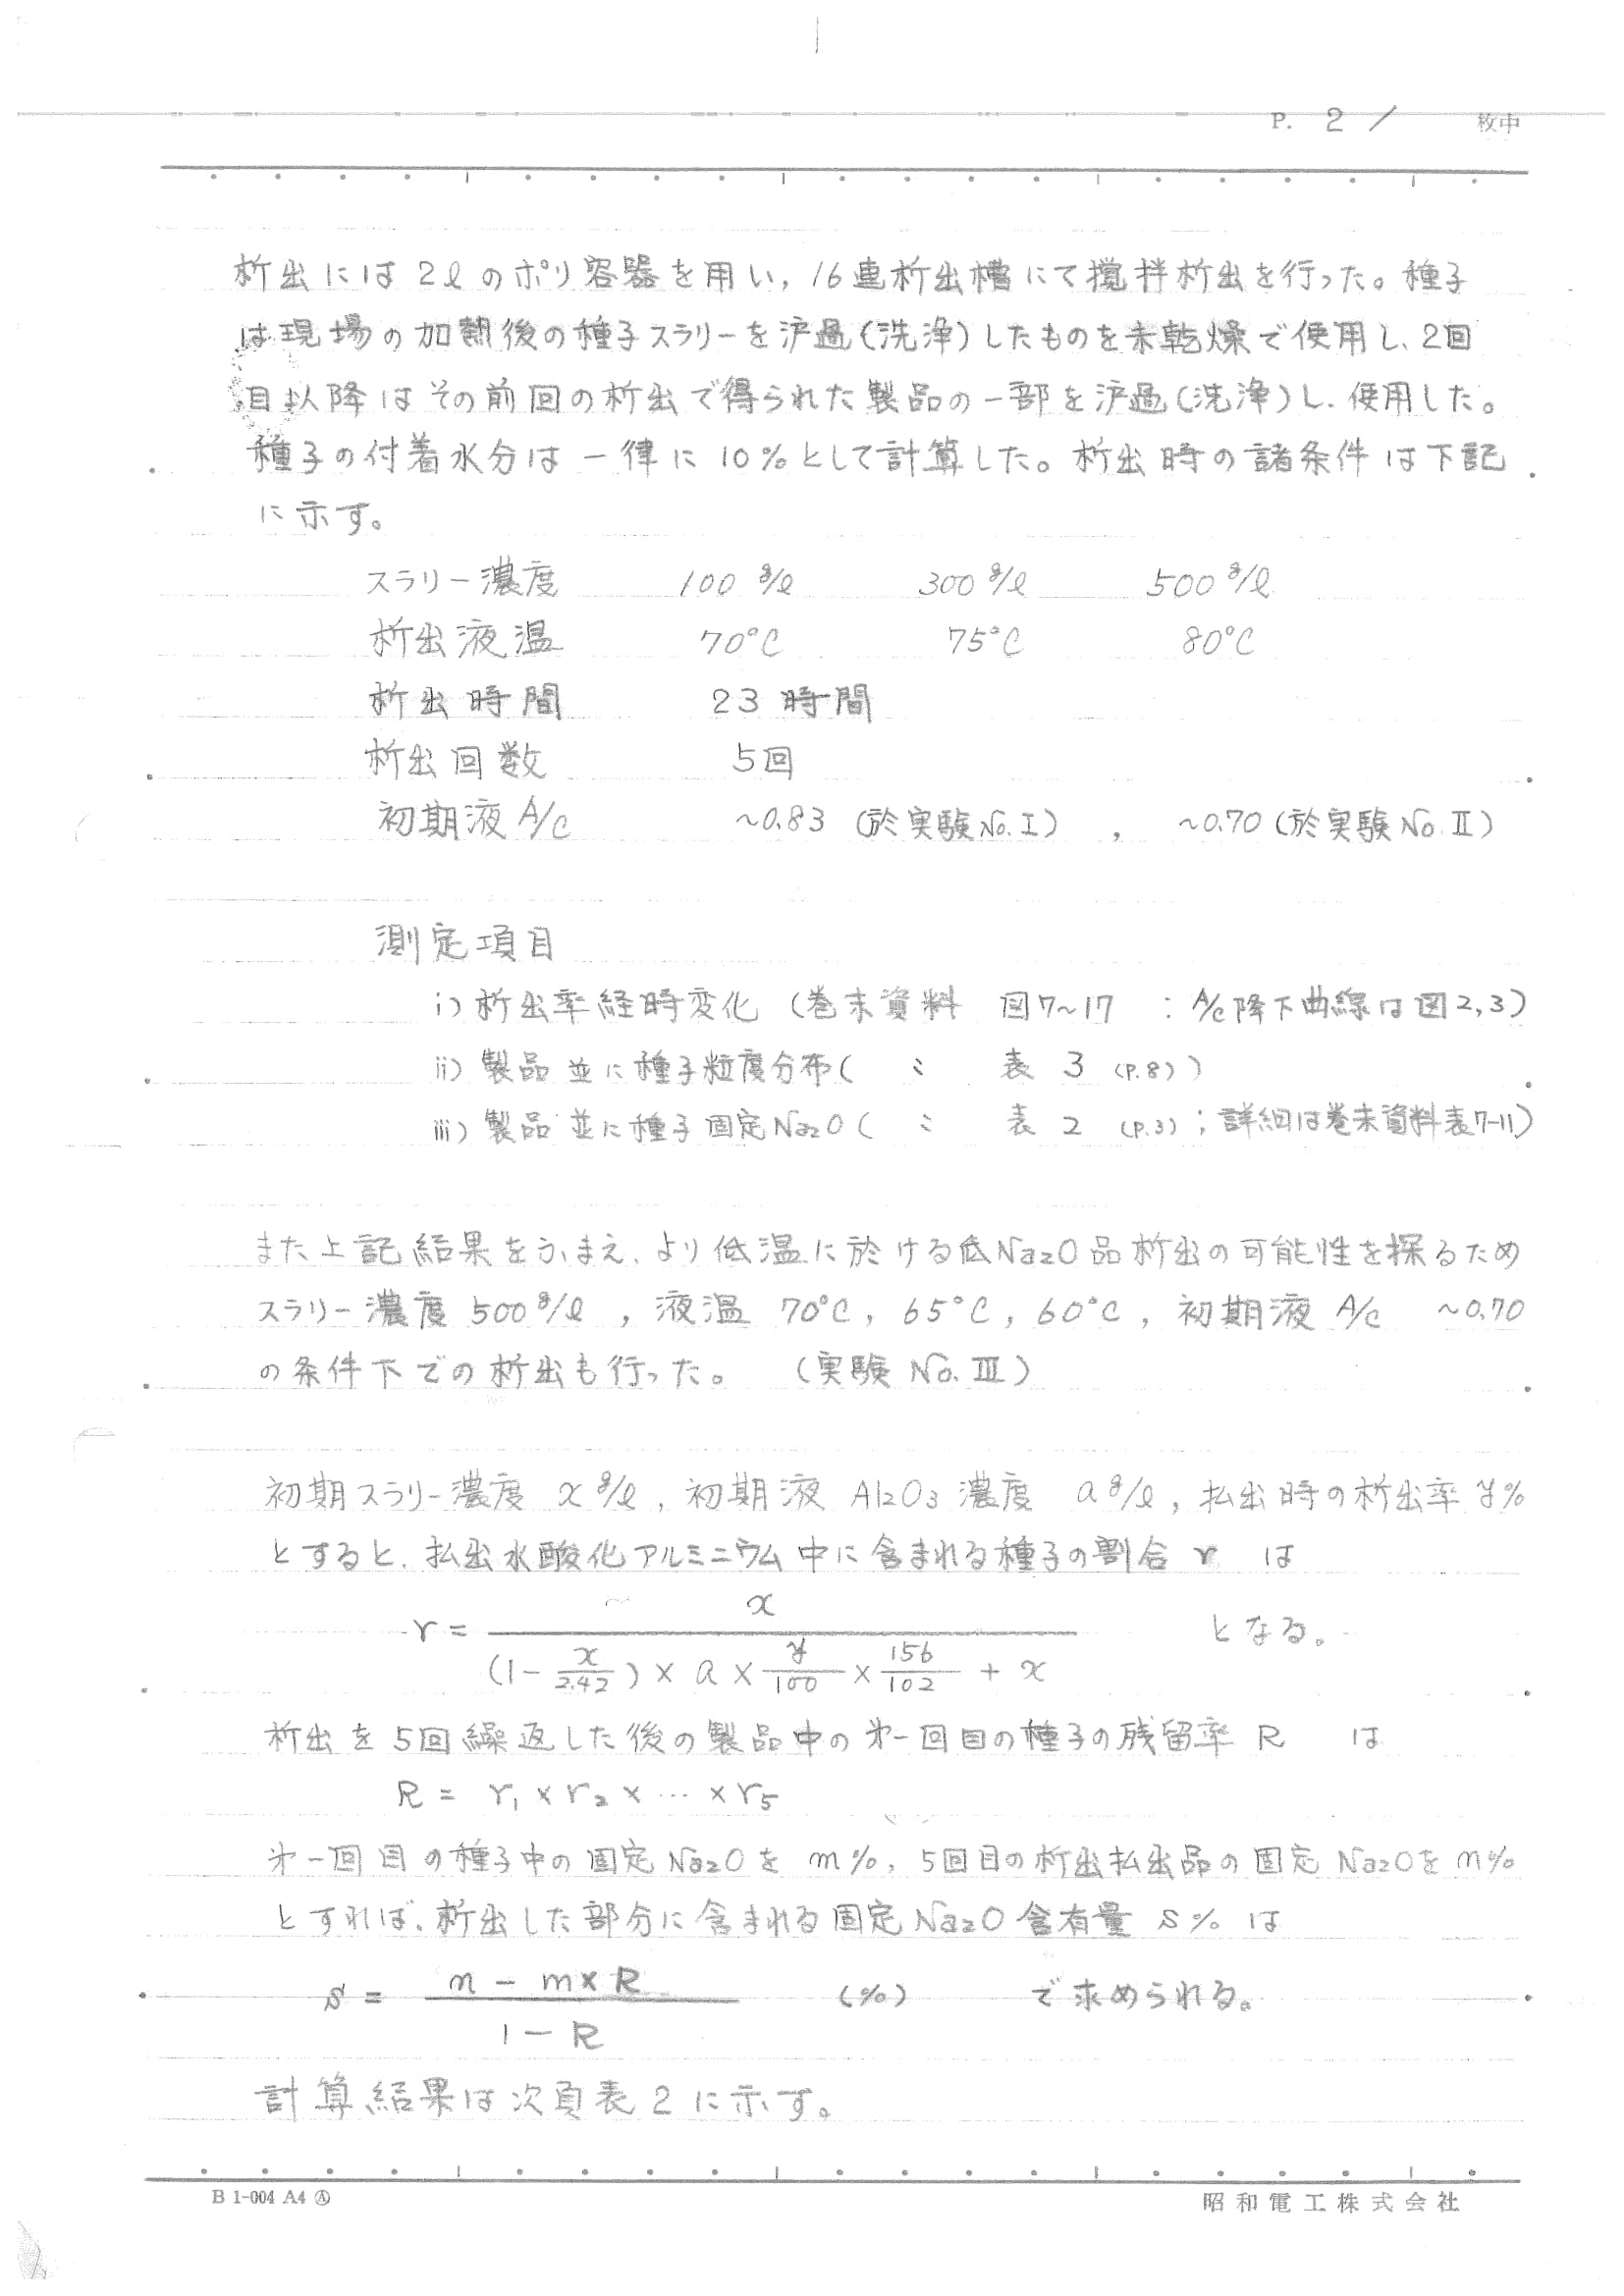 P. 2 / 枚中
析出には 2ℓ のポリ容器を用い, 16連析出槽にて攪拌析出を行った。種子
は現場の加熱後の種子スラリーを沪過(洗浄)したものを未乾燥で使用し、2回
目以降はその前回の析出で得られた製品の一部を沪過(洗浄)し、使用した。
種子の付着水分は一律に 10%として計算した。析出時の諸条件は下記
に示す。
スラリー濃度 100 g/ℓ 300 g/ℓ 500 g/ℓ
析出液温 70°C 75°C 80°C
析出時間 23 時間
析出回数 5回
初期液 A/C ~0.83 (於実験No. I) , ~0.70 (於実験No. II)
測定項目
i) 析出率経時変化 (巻末資料 図7~17 : A/C降下曲線は図2,3)
ii) 製品並に種子粒度分布( 〃 表 3 (P.8))
iii) 製品並に種子固定Na₂O ( 〃 表 2 (P.3) ; 詳細は巻末資料表7-11)
また上記結果をふまえ、より低温に於ける低Na₂O品析出の可能性を探るため
スラリー濃度 500 g/ℓ , 液温 70°C , 65°C , 60°C , 初期液 A/C ~0.70
の条件下での析出も行った。 (実験 No. III)
初期スラリー濃度 x g/ℓ , 初期液 Al₂O₃ 濃度 a g/ℓ , 払出時の析出率 y%
とすると、払出水酸化アルミニウム中に含まれる種子の割合 r は
r = x / ((1 - x/2.42) × a × y/100 × 156/102 + x) となる。
析出を5回繰返した後の製品中の才一回目の種子の残留率 R は
R = r₁ × r₂ × … × r₅
才一回目の種子中の固定Na₂Oを m%, 5回目の析出払出品の固定Na₂Oを n%
とすれば、析出した部分に含まれる固定Na₂O含有量 S% は
S = (n - m×R) / (1 - R) (%) で求められる。
計算結果は次頁表2に示す。
B 1-004 A4 Ⓐ 昭和電工株式会社